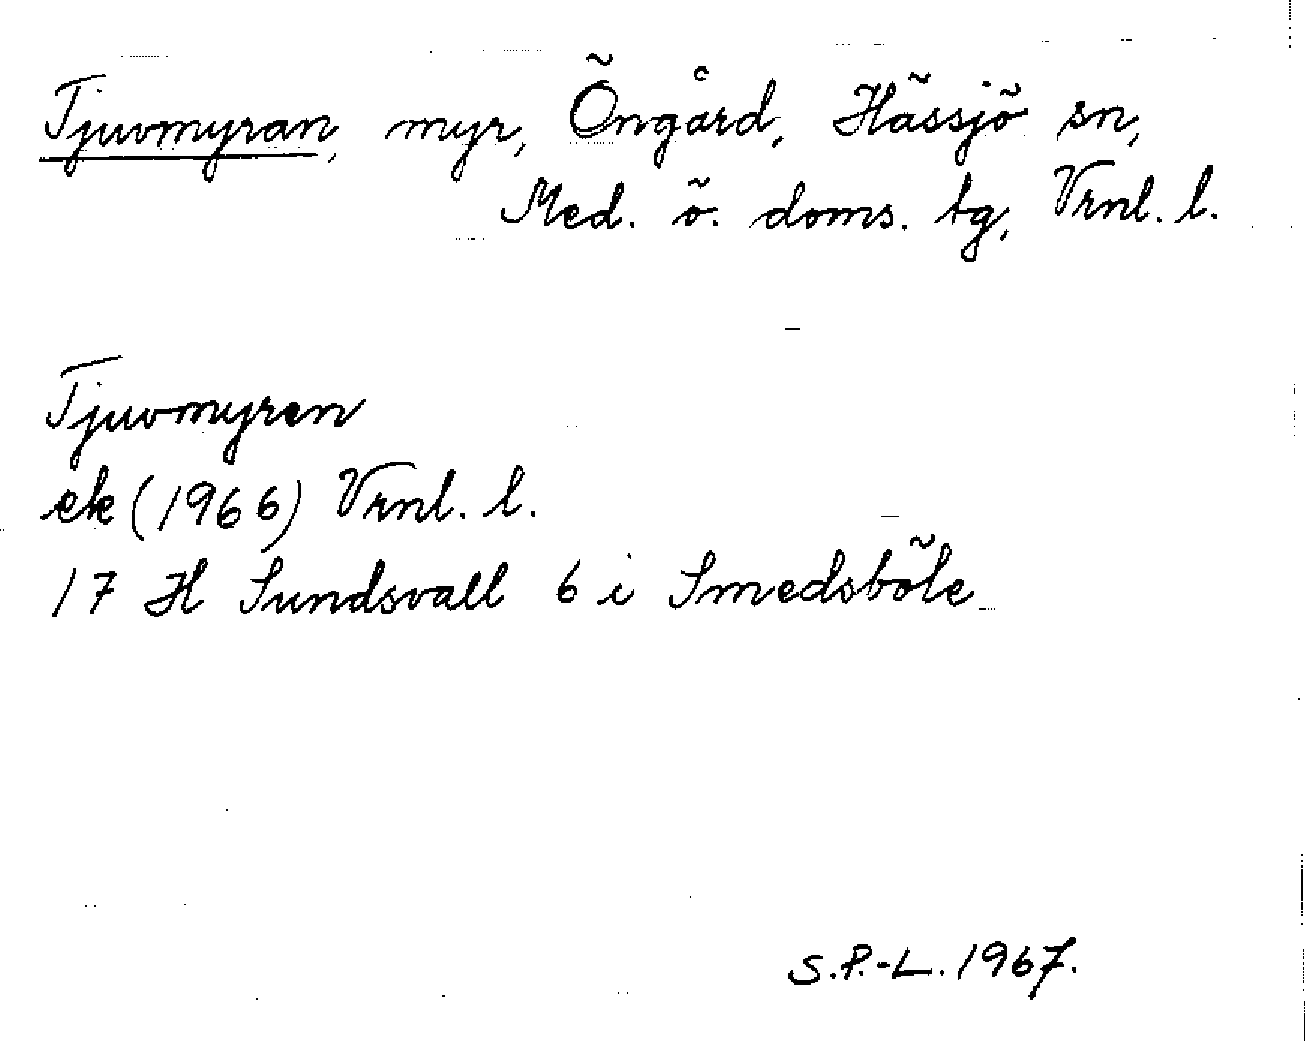 Tjuvmyran, myr, Öngård, Hässjö sn,
Med. ö. doms. tg, Vrnl. l.
Tjuvmyren
ek (1966) Vrnl. l.
17 H Sundsvall 6 i Smedsböle
S.P.-L. 1967.